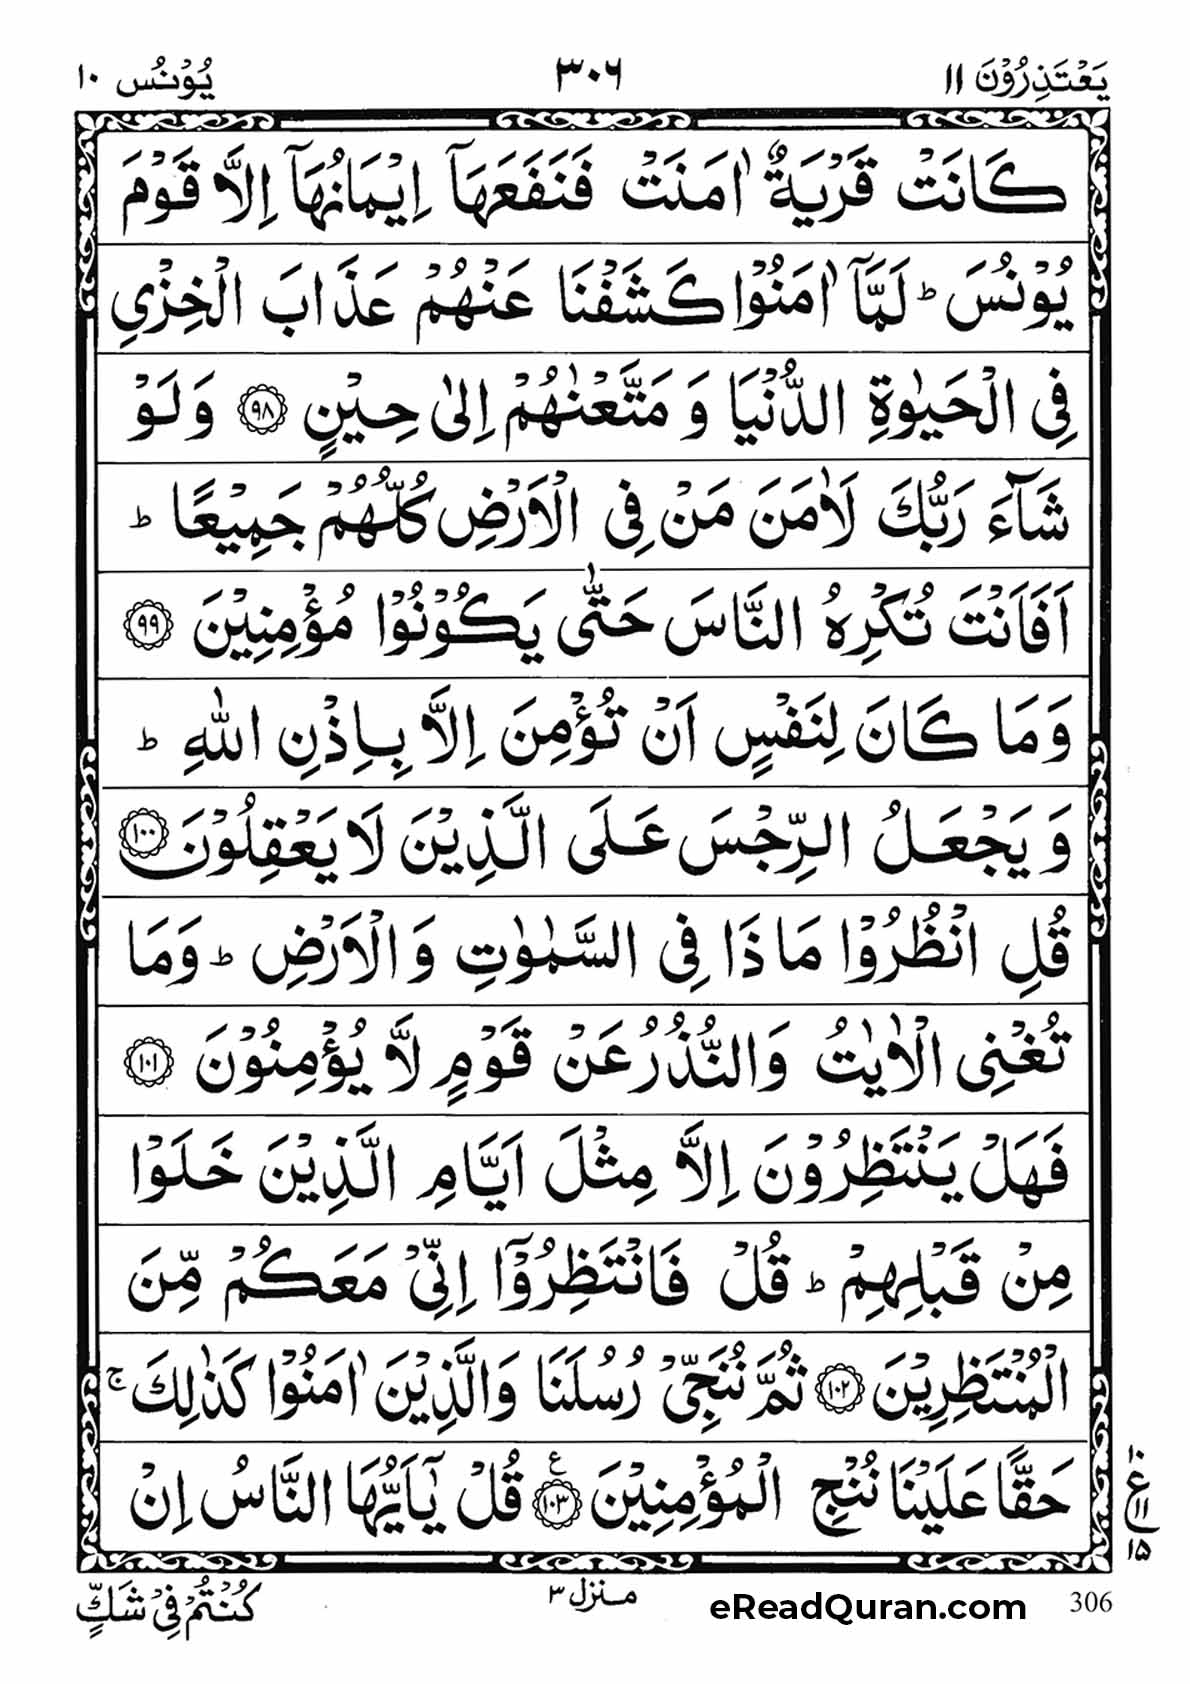 يَعْتَذِرُوْنَ ١١ ٣٠٦ يُوْنُس ١٠
كَانَتْ قَرْيَةٌ اٰمَنَتْ فَنَفَعَهَاۤ اِيْمَانُهَاۤ اِلَّا قَوْمَ
يُوْنُسَ ؕ لَمَّاۤ اٰمَنُوْا كَشَفْنَا عَنْهُمْ عَذَابَ الْخِزْيِ
فِى الْحَيٰوةِ الدُّنْيَا وَ مَتَّعْنٰهُمْ اِلٰى حِيْنٍ ﴿٩٨﴾ وَلَوْ
شَآءَ رَبُّكَ لَاٰمَنَ مَنْ فِى الْاَرْضِ كُلُّهُمْ جَمِيْعًا ؕ
اَفَاَنْتَ تُكْرِهُ النَّاسَ حَتّٰى يَكُوْنُوْا مُؤْمِنِيْنَ ﴿٩٩﴾
وَمَا كَانَ لِنَفْسٍ اَنْ تُؤْمِنَ اِلَّا بِاِذْنِ اللّٰهِ ؕ
وَ يَجْعَلُ الرِّجْسَ عَلَى الَّذِيْنَ لَا يَعْقِلُوْنَ ﴿١٠٠﴾
قُلِ انْظُرُوْا مَاذَا فِى السَّمٰوٰتِ وَ الْاَرْضِ ؕ وَمَا
تُغْنِى الْاٰيٰتُ وَالنُّذُرُ عَنْ قَوْمٍ لَّا يُؤْمِنُوْنَ ﴿١٠١﴾
فَهَلْ يَنْتَظِرُوْنَ اِلَّا مِثْلَ اَيَّامِ الَّذِيْنَ خَلَوْا
مِنْ قَبْلِهِمْ ؕ قُلْ فَانْتَظِرُوْۤا اِنِّىْ مَعَكُمْ مِّنَ
الْمُنْتَظِرِيْنَ ﴿١٠٢﴾ ثُمَّ نُنَجِّىْ رُسُلَنَا وَالَّذِيْنَ اٰمَنُوْا كَذٰلِكَ ۚ
حَقًّا عَلَيْنَا نُنْجِ الْمُؤْمِنِيْنَ ﴿١٠٣﴾ ع قُلْ يٰۤاَيُّهَا النَّاسُ اِنْ
١٠ ع ١١ ١٥
306 eReadQuran.com منزل ٣ كُنْتُمْ فِىْ شَكٍّ